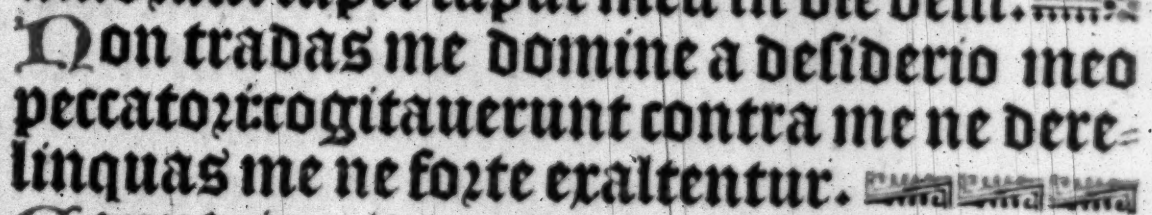 Non tradas me domine a desiderio meo
peccatori:cogitauerunt contra me ne dere-
linquas me ne forte exaltentur.